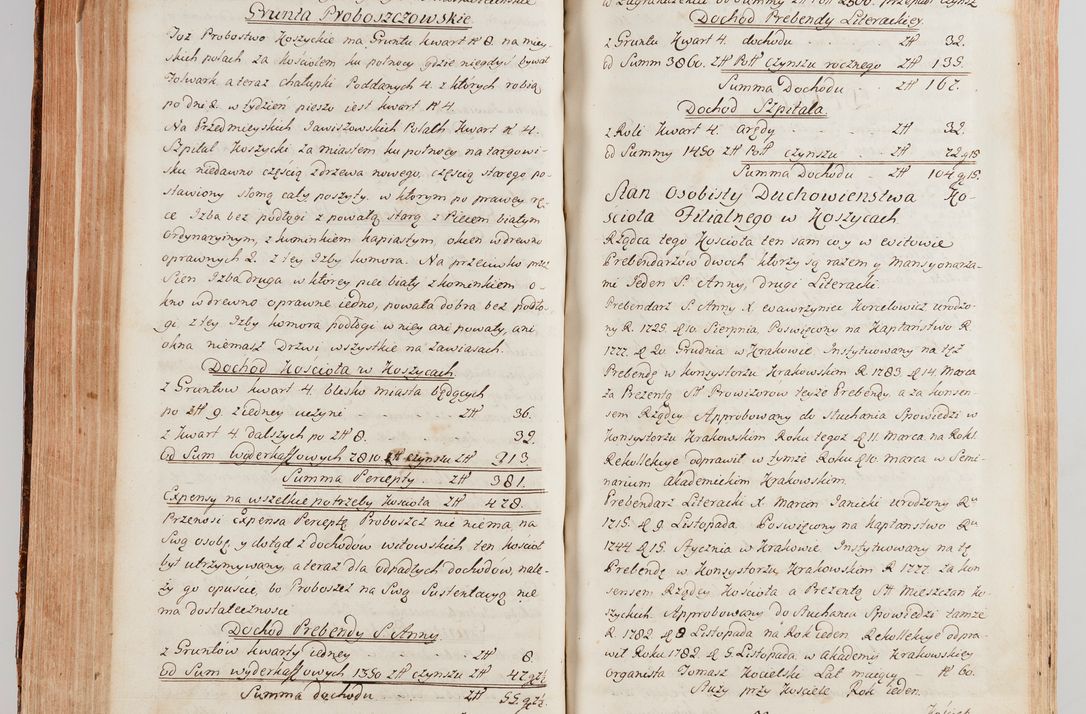 Grunta Proboszczowskie
Toż Probostwo Koszyckie ma Gruntu kwart N 8. na miey-
skich polach za kościołem ku połnocy gdzie niegdyś bywał
Folwark a teraz chałupki Poddanych 4. z ktorych robią
po dni 2. w tydzień pieszo iest kwart N 4.
Na Przedmieyskich Jawiszowskich Polach Kwart N 4.
Szpital Koszycki za miastem ku połnocy na targowi-
sku niedawno częścią z drzewa nowego, częścią starego po-
stawiony słomą cały poszyty. w ktorym po prawey rę-
ce Izba bez podłogi z powałą starą z Piecem białym
ordynaryinym, z kominkiem kapiastym, okien w drewno
oprawnych 2. z tey Izby komora. Na przeciwko przez
Sien Izba druga w ktorey piec biały z kominkiem o-
kno w drewno oprawne iedno, powała dobra bez podło-
gi, z tey Izby komora podłogi w niey ani powały, ani
okna niemasz Drzwi wszystkie na zawiasach.
Dochod Kościoła w Koszycach
z Gruntow kwart 4. blisko miasta będących
po zł 9. z iedney uczyni zł 36.
z kwart 4. dalszych po zł 8. 32.
od Sum wyderkaffowych 7810. zł czynszu zł 313.
Summa Percepty zł 381.
Expensy na wszelkie potrzeby kościoła zł 478.
Przenosi Expensa Perceptę Proboszcz nic niema na
Swą osobę, y dotąd z dochodów witowskich ten kościoł
był utrzymywany, a teraz dla odpadłych dochodow, nale-
ży go opuścić, bo Proboszcz na Swą Sustentacyą nie
ma dostateczności
Dochod Prebendy S. Anny.
z Gruntow kwarty iedney zł 8.
od Sum wyderkaffowych 1350 zł czynszu zł 47 g
Summa dochodu zł 55. g
Dochod Prebendy Literackiey.
z Gruntu Kwart 4. dochodu zł 32.
od Summ 3860. zł Pol czynszu rocznego zł 135.
Summa Dochodu zł 167.
Dochod Szpitala.
z Roli Kwart 4. arędy zł 32.
od Summy 1450 zł Pol czynszu zł 72 g 15
Summa Dochodu zł 104 g 15.
Stan osobisty Duchowienstwa Ko-
scioła Filialnego w Koszycach
Rządca tego Kościoła ten sam co y w Witowie
Prebendarzow dwoch ktorzy są razem y Mansyonarza-
mi Jeden S. Anny, drugi Literacki.
Prebendarz S. Anny X. Wawrzyniec Korcelowicz urodzo-
ny R. 1725. d 10. Sierpnia, Poswięcony na Kapłaństwo R.
1777. d 20. Grudnia w Krakowie. Instytuowany na tęż
Prebendę w konsystorzu Krakowskim R 1783 d 14. Marca
za Prezentą Prowizorow teyże Prebendy. a za konsen-
sem Rządcy. Approbowany do słuchania Spowiedzi w
Konsystorzu Krakowskim Roku tegoż d 11. Marca. na Rok 1.
Rekollekcye odprawił w tymże Roku d 10. marca w Semi-
narium akademickim Krakowskim.
Prebendarz Literacki X. Marcin Janicki urodzony Ru
1715. d 9. Listopada. Poswięcony na kapłanstwo Ru
1744 d 15. Stycznia w Krakowie. Instytuowany na tę
Prebendę w Konsystorzu Krakowskim R 1777. za kon
sensem Rządcy Kościoła a Prezentą Mieszczan Ko-
szyckich. Approbowany do Słuchania Spowiedzi tamże
R 1782 d 8 Listopada na Rok ieden Rekollekcye odpra-
wił Roku 1782. d 5. Listopada w Akademij Krakowskiey
organista Tomasz Kocielski Lat maiący N 60.
Służy przy Kościele Rok ieden.